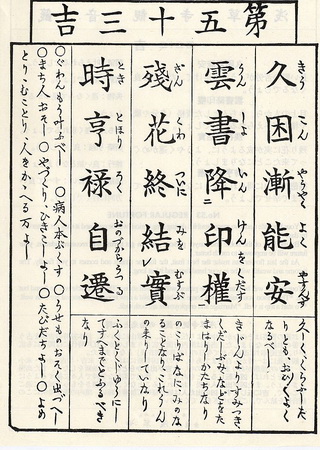 第五十三吉
久困漸能安
きう こん やうやく よく やすんず
久しく、くらうした
りとも、おひ〳〵よく
なるべし
雲書降印權
うん しよ いん けんをくだす
きじんよりすみつき
くだしぶみ、などをた
まはりしかたちなり
殘花終結實
ざん くわ ついに みを むすぶ
のこりばなに、みのな
ることなり、これうん
の来りしていなり
時亨禄自遷
とき とほり ろく おのづからうつる
ふくとくじゆうにし
てすへまでとふるべき
なり
○ぐわんもう叶ふべし ○病人本ぷくす ○うせものおそく出づべし
○まち人おそし ○やづくり、ひきこしよし ○たびだちよし ○よめ
とり、むことり、人をかゝへる万よし